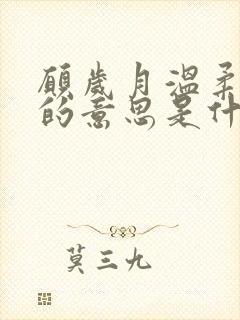 願歲月溫柔
的意思是什
莫三九